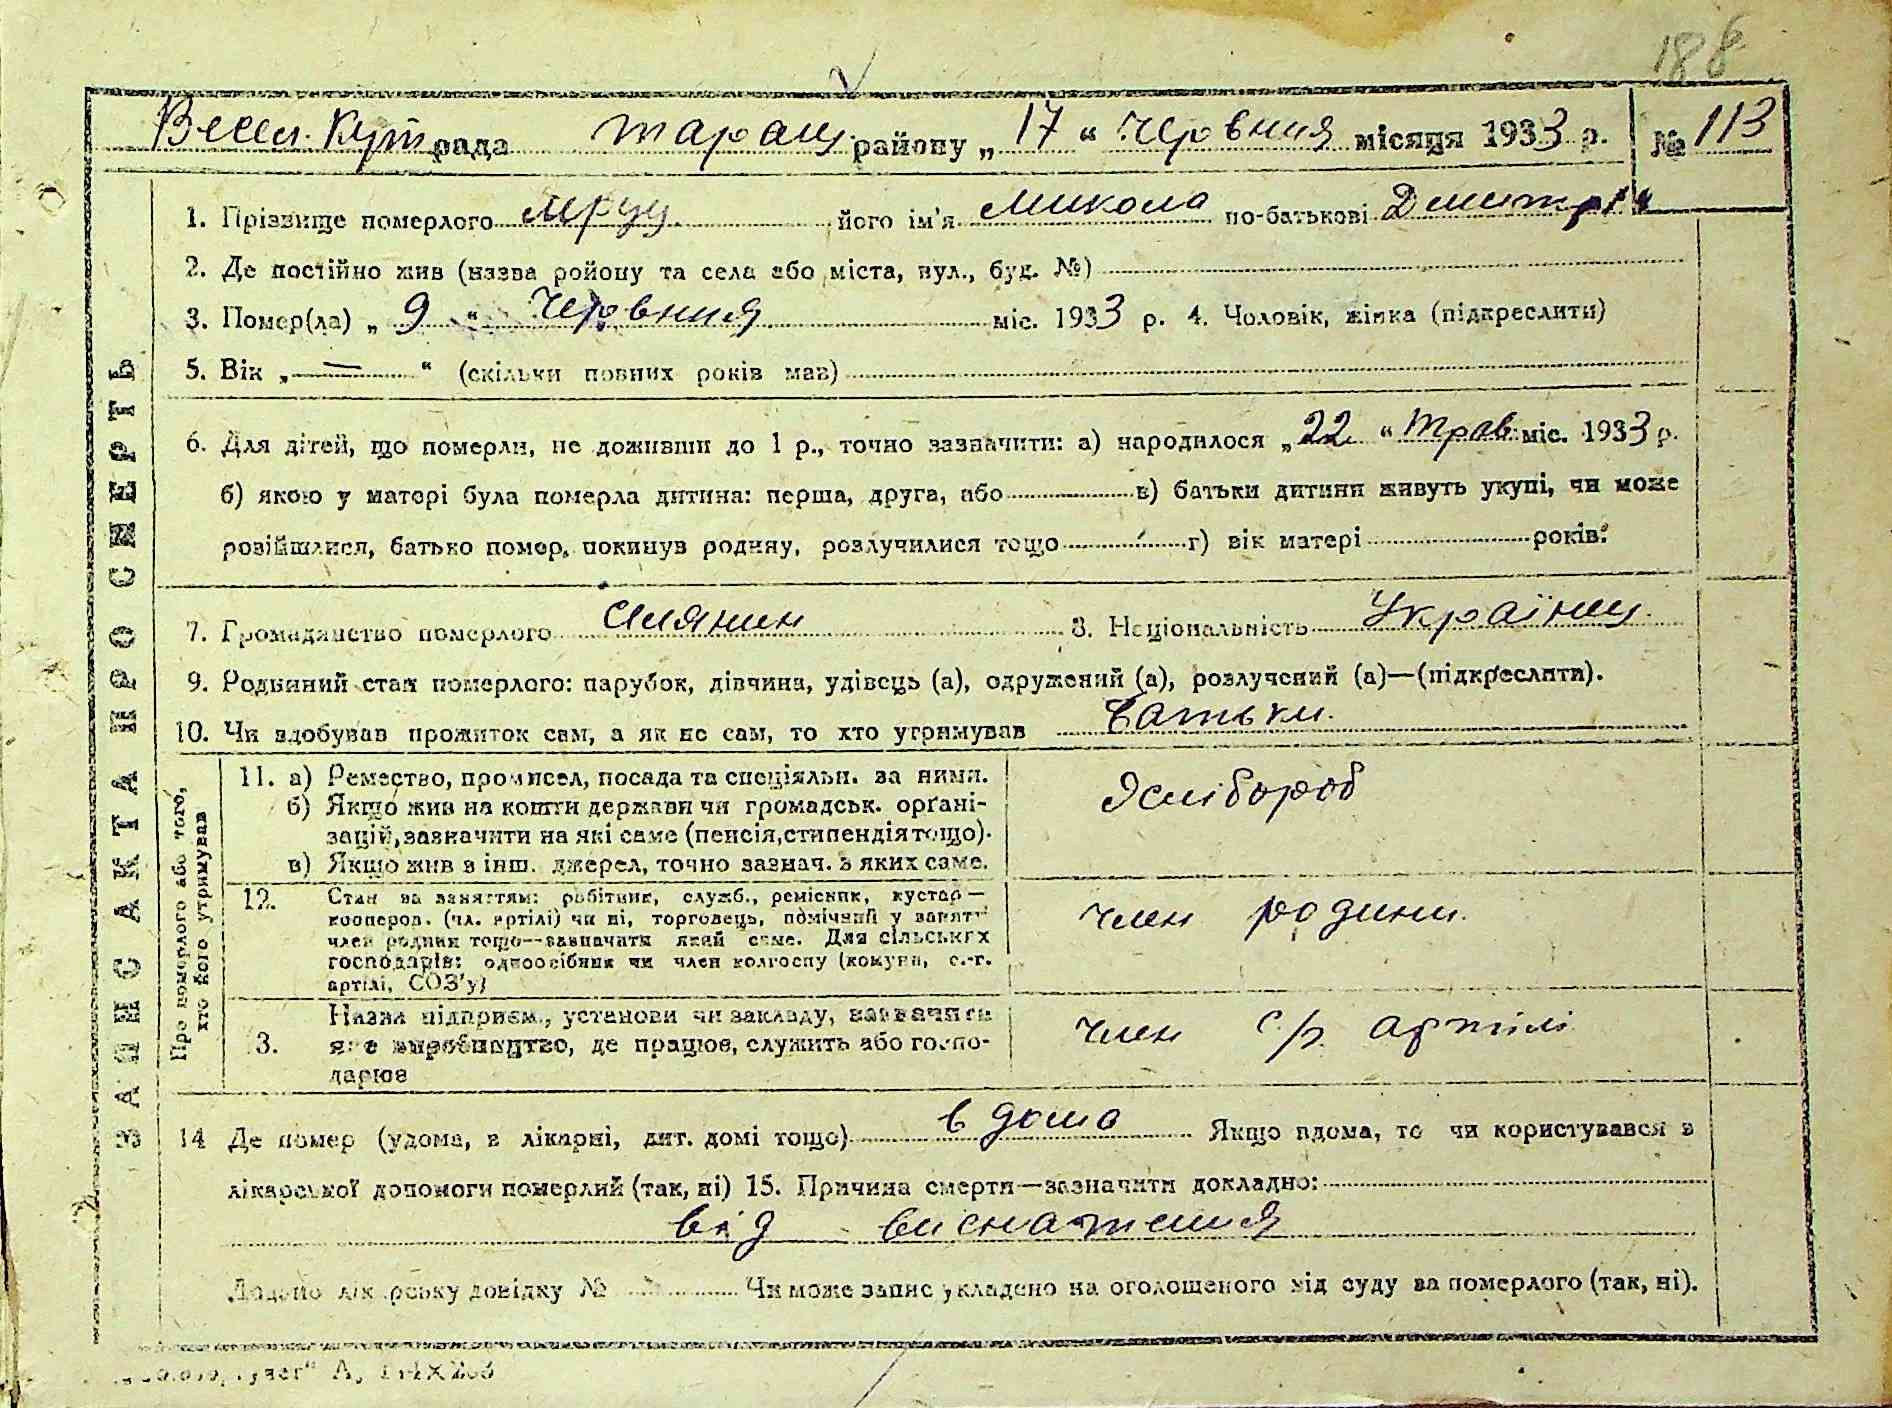 188
Весел. Кут рада таращ. району „17“ Червня місяця 1933 р. № 113
1. Прізвище померлого його ім'я Микола по-батькові Дмитрів
2. Де постійно жив (назва району та села або міста, вул., буд. №)
3. Помер(ла) „9“ Червня міс. 1933 р. 4. Чоловік, жінка (підкреслити)
5. Вік „—“ (скільки повних років мав)
6. Для дітей, що померли, не доживши до 1 р., точно зазначити: а) народилося „22“ Трав. міс. 1933 р.
б) якою у матері була померла дитина: перша, друга, або в) батьки дитини живуть укупі, чи може
розійшлися, батько помер, покинув родину, розлучилися тощо г) вік матері років.
7. Громадянство померлого Селянин 8. Національність Українц.
9. Родинний стан померлого: парубок, дівчина, удівець (а), одружений (а), розлучений (а)—(підкреслити).
10. Чи здобував прожиток сам, а як не сам, то хто утримував батьки.
ЗАПИС АКТА ПРО СМЕРТЬ
Про померлого або того, хто його утримував
11. а) Ремество, промисел, посада та спеціяльн. за ними.
б) Якщо жив на кошти держави чи громадськ. органі-
зацій, зазначити на які саме (пенсія, стипендія тощо).
в) Якщо жив з інш. джерел, точно зазнач. з яких саме.
Хлібороб
12. Стан за заняттям: робітник, служб., ремісник, кустар—
кооперов. (чл. артілі) чи ні, торговець, помічний у занятті
член родини тощо—зазначити який саме. Для сільських
господарів: одноосібник чи член колгоспу (комуни, с.-г.
артілі, СОЗ'у)
член родини.
Назва підприєм., установи чи закладу, зазначити
3. яке виробництво, де працює, служить або госпо-
дарює
член с/г. артілі
14 Де помер (удома, в лікарні, дит. домі тощо) в дома Якщо вдома, то чи користувався з
лікарської допомоги померлий (так, ні) 15. Причина смерти—зазначити докладно:
від виснаження
Додано лікарську довідку № Чи може запис укладено на оголошеного від суду за померлого (так, ні).